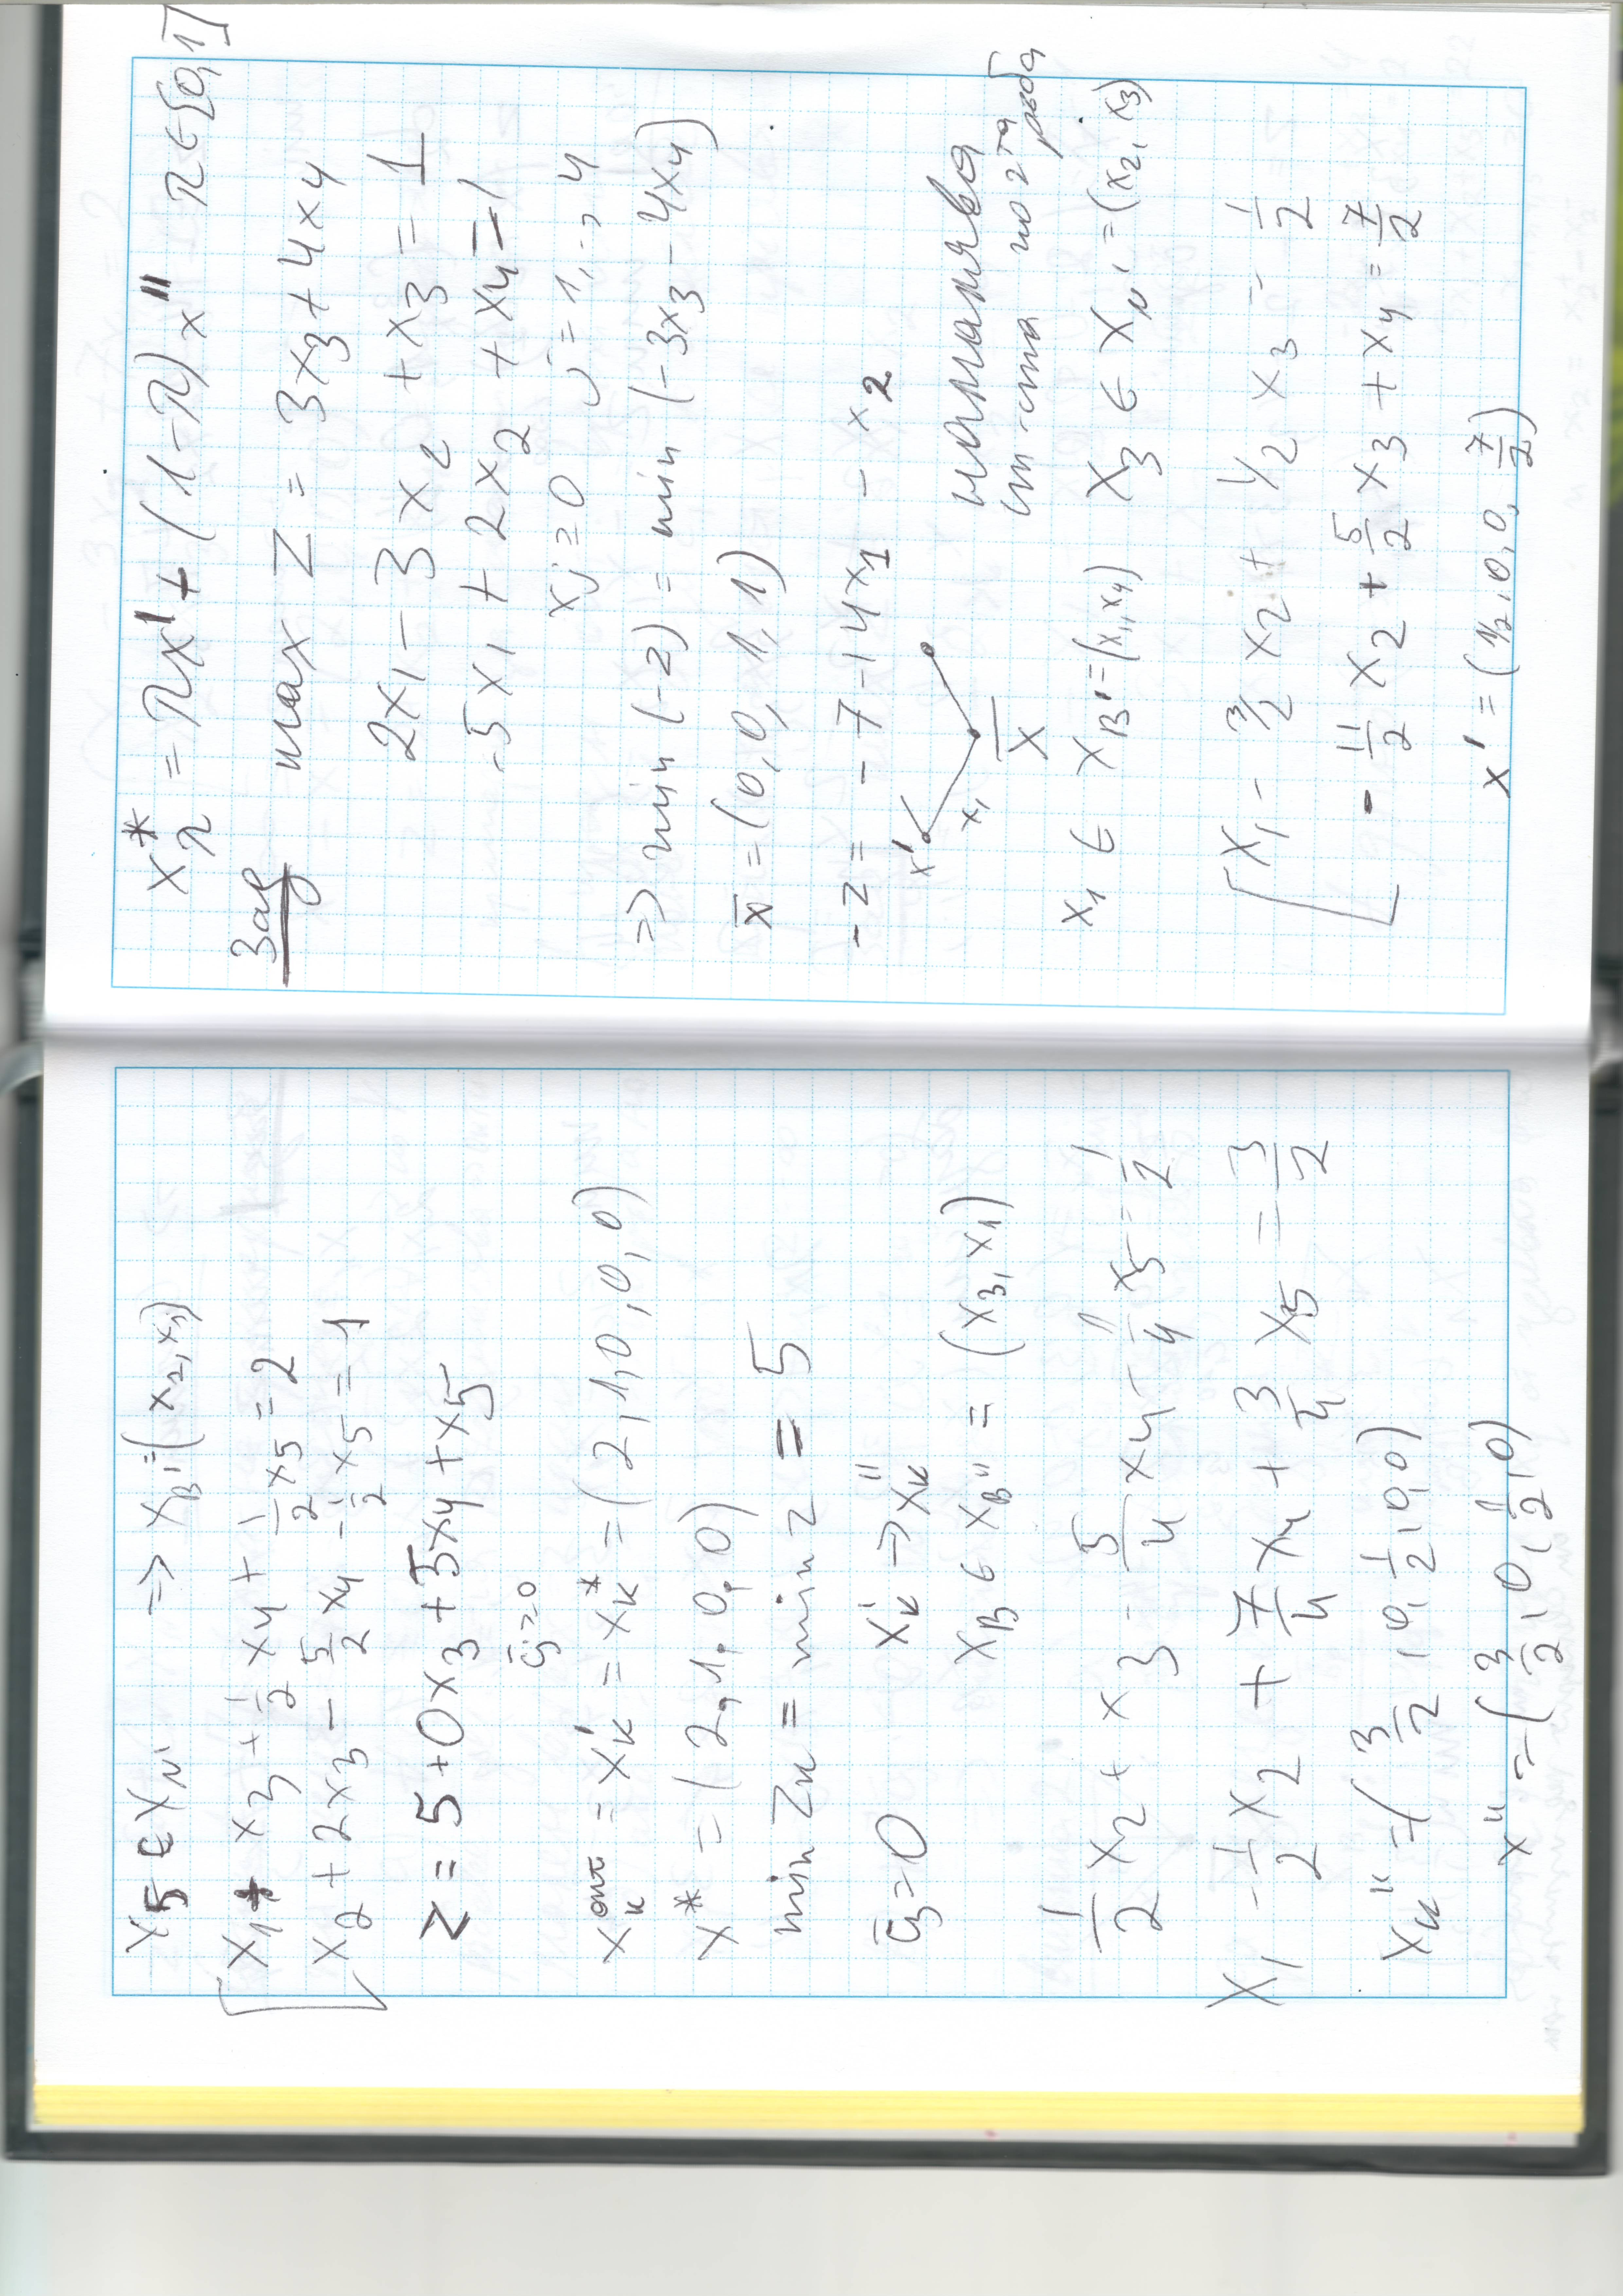 x5 ∈ xN' => xB' = (x2, x1)
x1 + x3 + 1/2 x4 + 1/2 x5 = 2
x2 + 2x3 - 5/2 x4 - 1/2 x5 = 1
z = 5 + 0x3 + 5x4 + x5
c̄j ≥ 0
xк опт = xк' = xк* = (2, 1, 0, 0, 0)
x* = (2, 1, 0, 0)
min zк = min z = 5
c̄3 = 0 xк' → xк''
xB ∈ xB'' = (x3, x1)
1/2 x2 + x3 - 5/4 x4 - 1/4 x5 = 1/2
x1 - 1/2 x2 + 7/4 x4 + 3/4 x5 = 3/2
xк'' = (3/2, 0, 1/2, 0, 0)
x'' = (3/2, 0, 1/2, 0)
x*λ = λx' + (1-λ) x'' λ ∈ [0,1]
Зад
max z = 3x3 + 4x4
2x1 - 3x2 + x3 = 1
-5x1 + 2x2 + x4 = 1
xj ≥ 0 j = 1, .., 4
=> min (-z) = min (-3x3 - 4x4)
x̄ = (0, 0, 1, 1)
-z = -7 - 14x1 - x2
x' x1 x̄
намалява
ст-ста по 2та
ръба
x1 ∈ xB' = (x1, x4) x3 ∈ xN' = (x2, x3)
x1 - 3/2 x2 + 1/2 x3 = 1/2
- 11/2 x2 + 5/2 x3 + x4 = 7/2
x' = (1/2, 0, 0, 7/2)